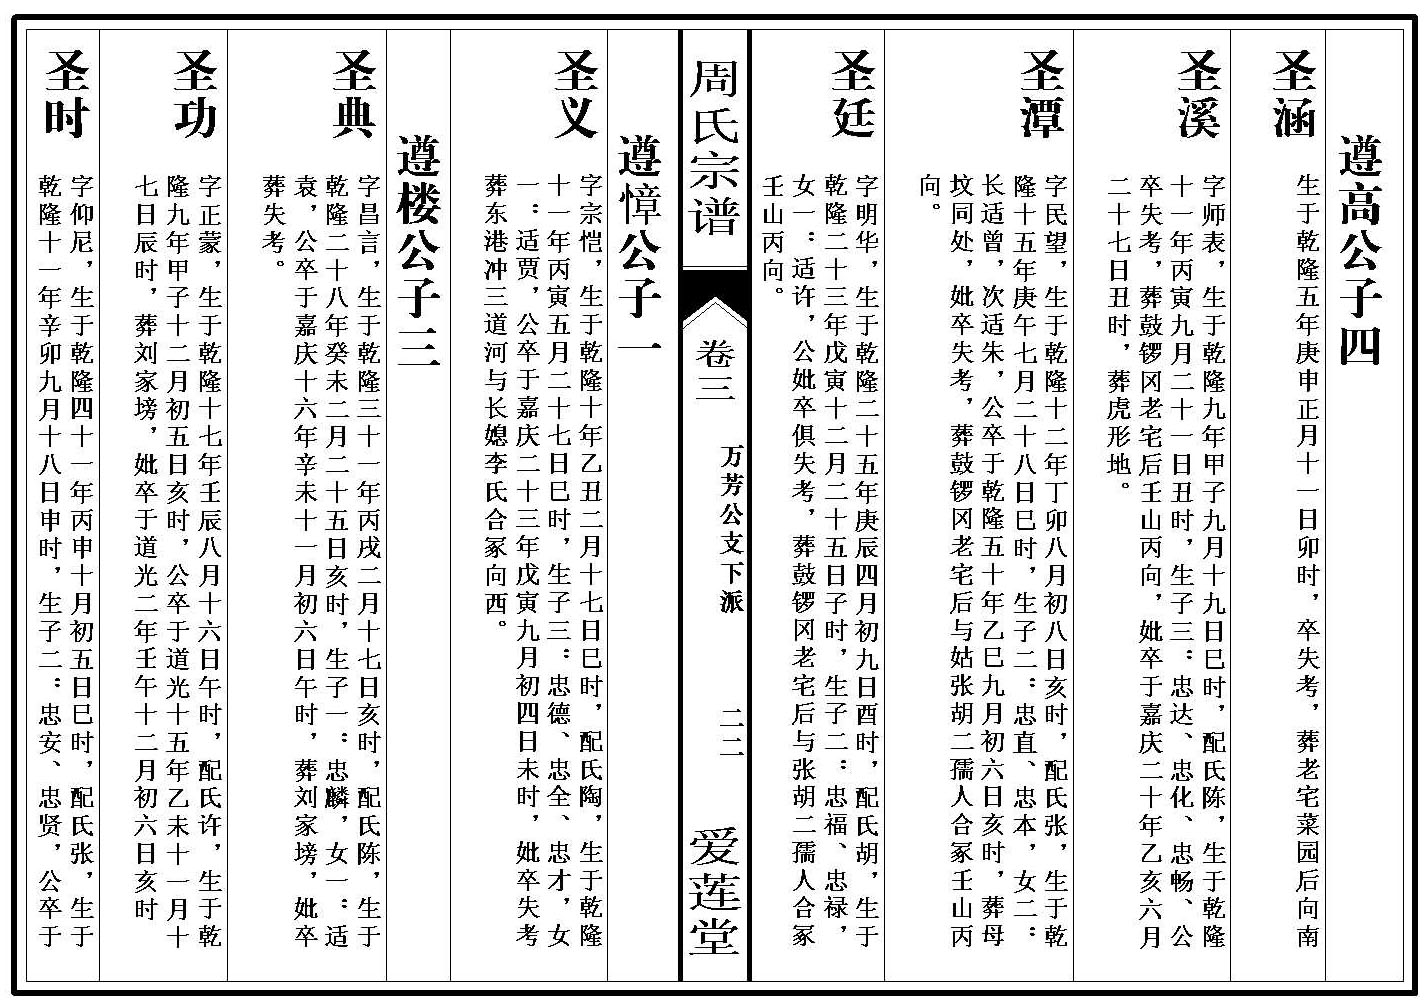 遵高公子四
圣涵
生于乾隆五年庚申正月十一日卯时，卒失考，葬老宅菜园后向南
圣溪
字师表，生于乾隆九年甲子九月十九日巳时，配氏陈，生于乾隆
十一年丙寅九月二十一日丑时，生子三：忠达、忠化、忠畅、公
卒失考，葬鼓锣冈老宅后壬山丙向，妣卒于嘉庆二十年乙亥六月
二十七日丑时，葬虎形地。
圣潭
字民望，生于乾隆十二年丁卯八月初八日亥时，配氏张，生于乾
隆十五年庚午七月二十八日巳时，生子二：忠直、忠本，女二：
长适曾，次适朱，公卒于乾隆五十年乙巳九月初六日亥时，葬母
坟同处，妣卒失考，葬鼓锣冈老宅后与姑张胡二孺人合冢壬山丙
向。
圣廷
字明华，生于乾隆二十五年庚辰四月初九日酉时，配氏胡，生于
乾隆二十三年戊寅十二月二十五日子时，生子二：忠福、忠禄，
女一：适许，公妣卒俱失考，葬鼓锣冈老宅后与张胡二孺人合冢
壬山丙向。
周氏宗谱
卷三
万芳公支下派
二二
爱莲堂
遵惇公子一
圣义
字宗恺，生于乾隆十年乙丑二月十七日巳时，配氏陶，生于乾隆
十一年丙寅五月二十七日巳时，生子三：忠德、忠全、忠才，女
一：适贾，公卒于嘉庆二十三年戊寅九月初四日未时，妣卒失考
葬东港冲三道河与长媳李氏合冢向西。
遵楼公子三
圣典
字昌言，生于乾隆三十一年丙戌二月十七日亥时，配氏陈，生于
乾隆二十八年癸未二月二十五日亥时，生子一：忠麟，女一：适
袁，公卒于嘉庆十六年辛未十一月初六日午时，葬刘家塝，妣卒
葬失考。
圣功
字正蒙，生于乾隆十七年壬辰八月十六日午时，配氏许，生于乾
隆九年甲子十二月初五日亥时，公卒于道光十五年乙未十一月十
七日辰时，葬刘家塝，妣卒于道光二年壬午十二月初六日亥时
圣时
字仰尼，生于乾隆四十一年丙申十月初五日巳时，配氏张，生于
乾隆十一年辛卯九月十八日申时，生子二：忠安、忠贤，公卒于